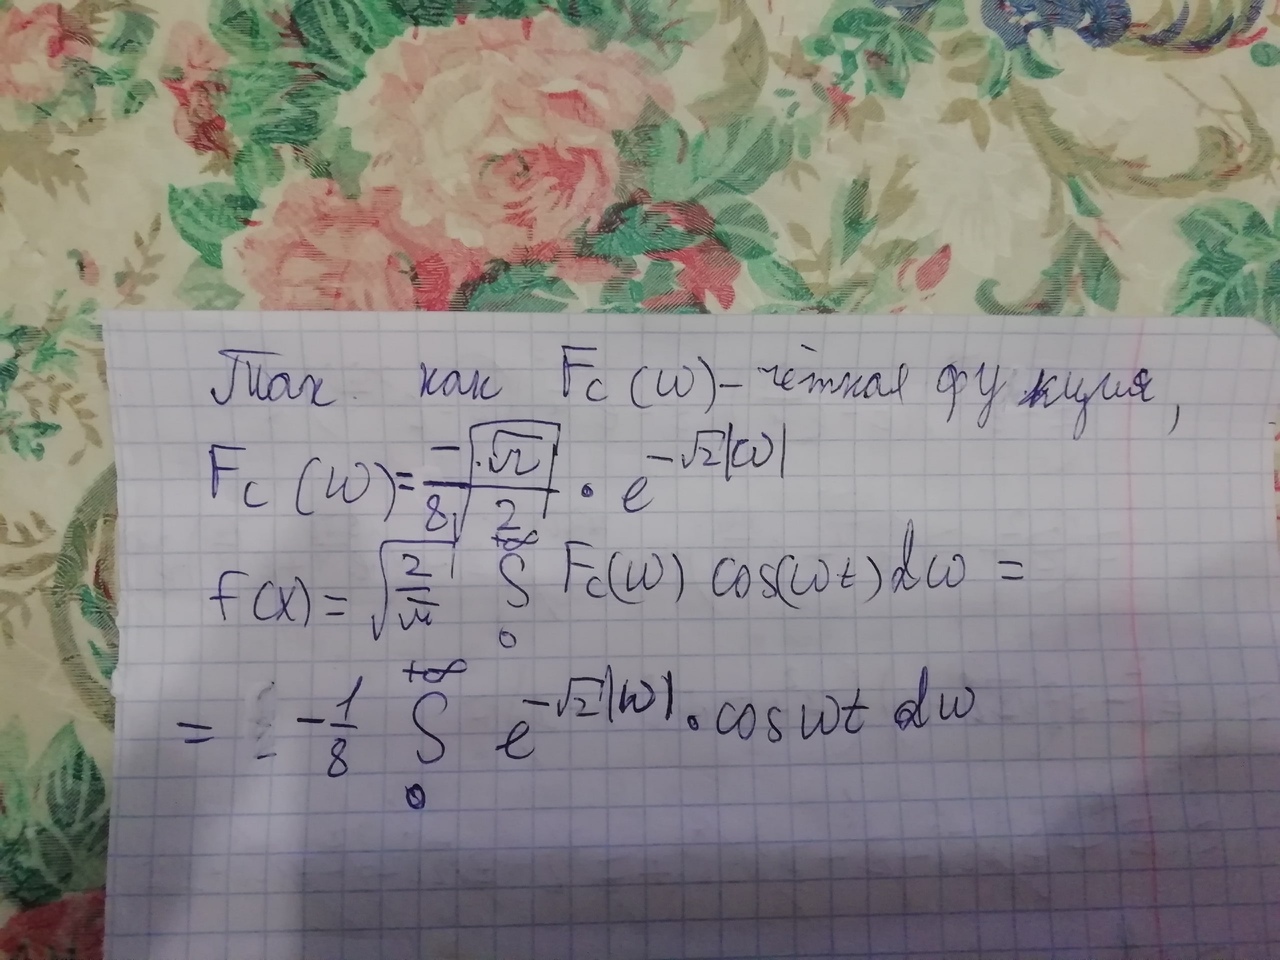 Так как Fc (ω) - чётная функция,
Fc (ω) = -√π/8√2 · e^(-√2|ω|)
f(x) = √(2/π) ∫₀^(+∞) Fc(ω) cos(ωt) dω =
= -1/8 ∫₀^(+∞) e^(-√2|ω|) · cos ωt dω